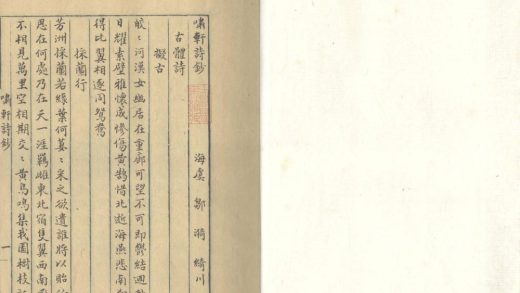 嘯軒詩鈔
海虞 鄒漪 綺川
古體詩
擬古
皎〻河漢女幽居在重廊可望不可即鬱結迴
日耀素壁雅懷成慘傷黃鵠惜北逝海燕悲南
得比翼相逐同鴛鴦
採蘭行
芳洲採蘭若綠葉何萋〻采之欲遺誰將以貽
思在何處乃在天一涯羈雌東北宿隻翼西南
不相見萬里空相期交〻黃鳥鳴集我園樹枝
嘯軒詩鈔
一